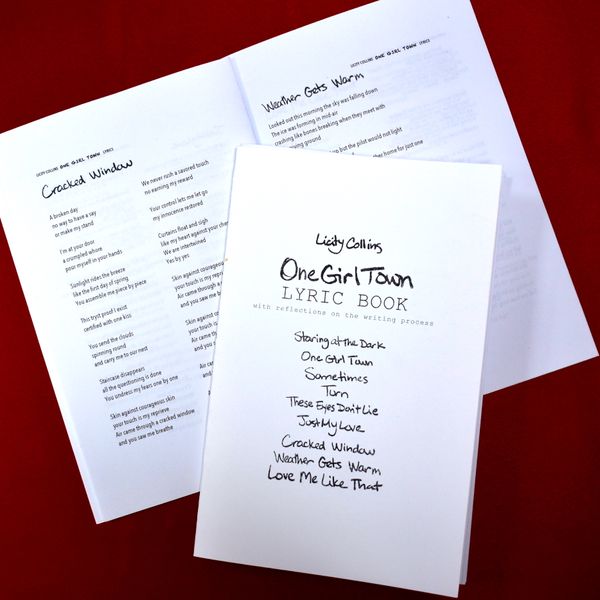 LICITY COLLINS ONE GIRL TOWN LYRICS
Cracked Window
A broken day
no way to have a say
or make my stand
I'm at your door
a crumpled whore
pour myself in your hands
Sunlight rides the breeze
like the first day of spring
You assemble me piece by piece
This tryst proof I exist
certified with one kiss
You send the clouds
spinning round
and carry me to our nest
Staircase disappears
all the questioning is done
You undress my fears one by one
Skin against courageous skin
your touch is my reprieve
Air came through a cracked window
and you saw me breathe
We never rush a savored touch
no earning my reward
Your control lets me let go
my innocence restored
Curtains float and sigh
like my heart against your
We are intertwined
Yes by yes
Skin against courageous
your touch is my
Air came through a
and you saw me
Skin against
your touch is
Air came
and you
LICITY COLLINS ONE GIRL TOWN LYRICS
Weather Gets Warm
Looked out this morning the sky was falling down
The ice was forming in mid-air
crashing like bones breaking when they meet with
ground
but the pilot would not light
home for just one
Licity Collins
One Girl Town
LYRIC BOOK
with reflections on the writing process
Staring at the Dark
One Girl Town
Sometimes
Turn
These Eyes Don't Lie
Just My Love
Cracked Window
Weather Gets Warm
Love Me Like That